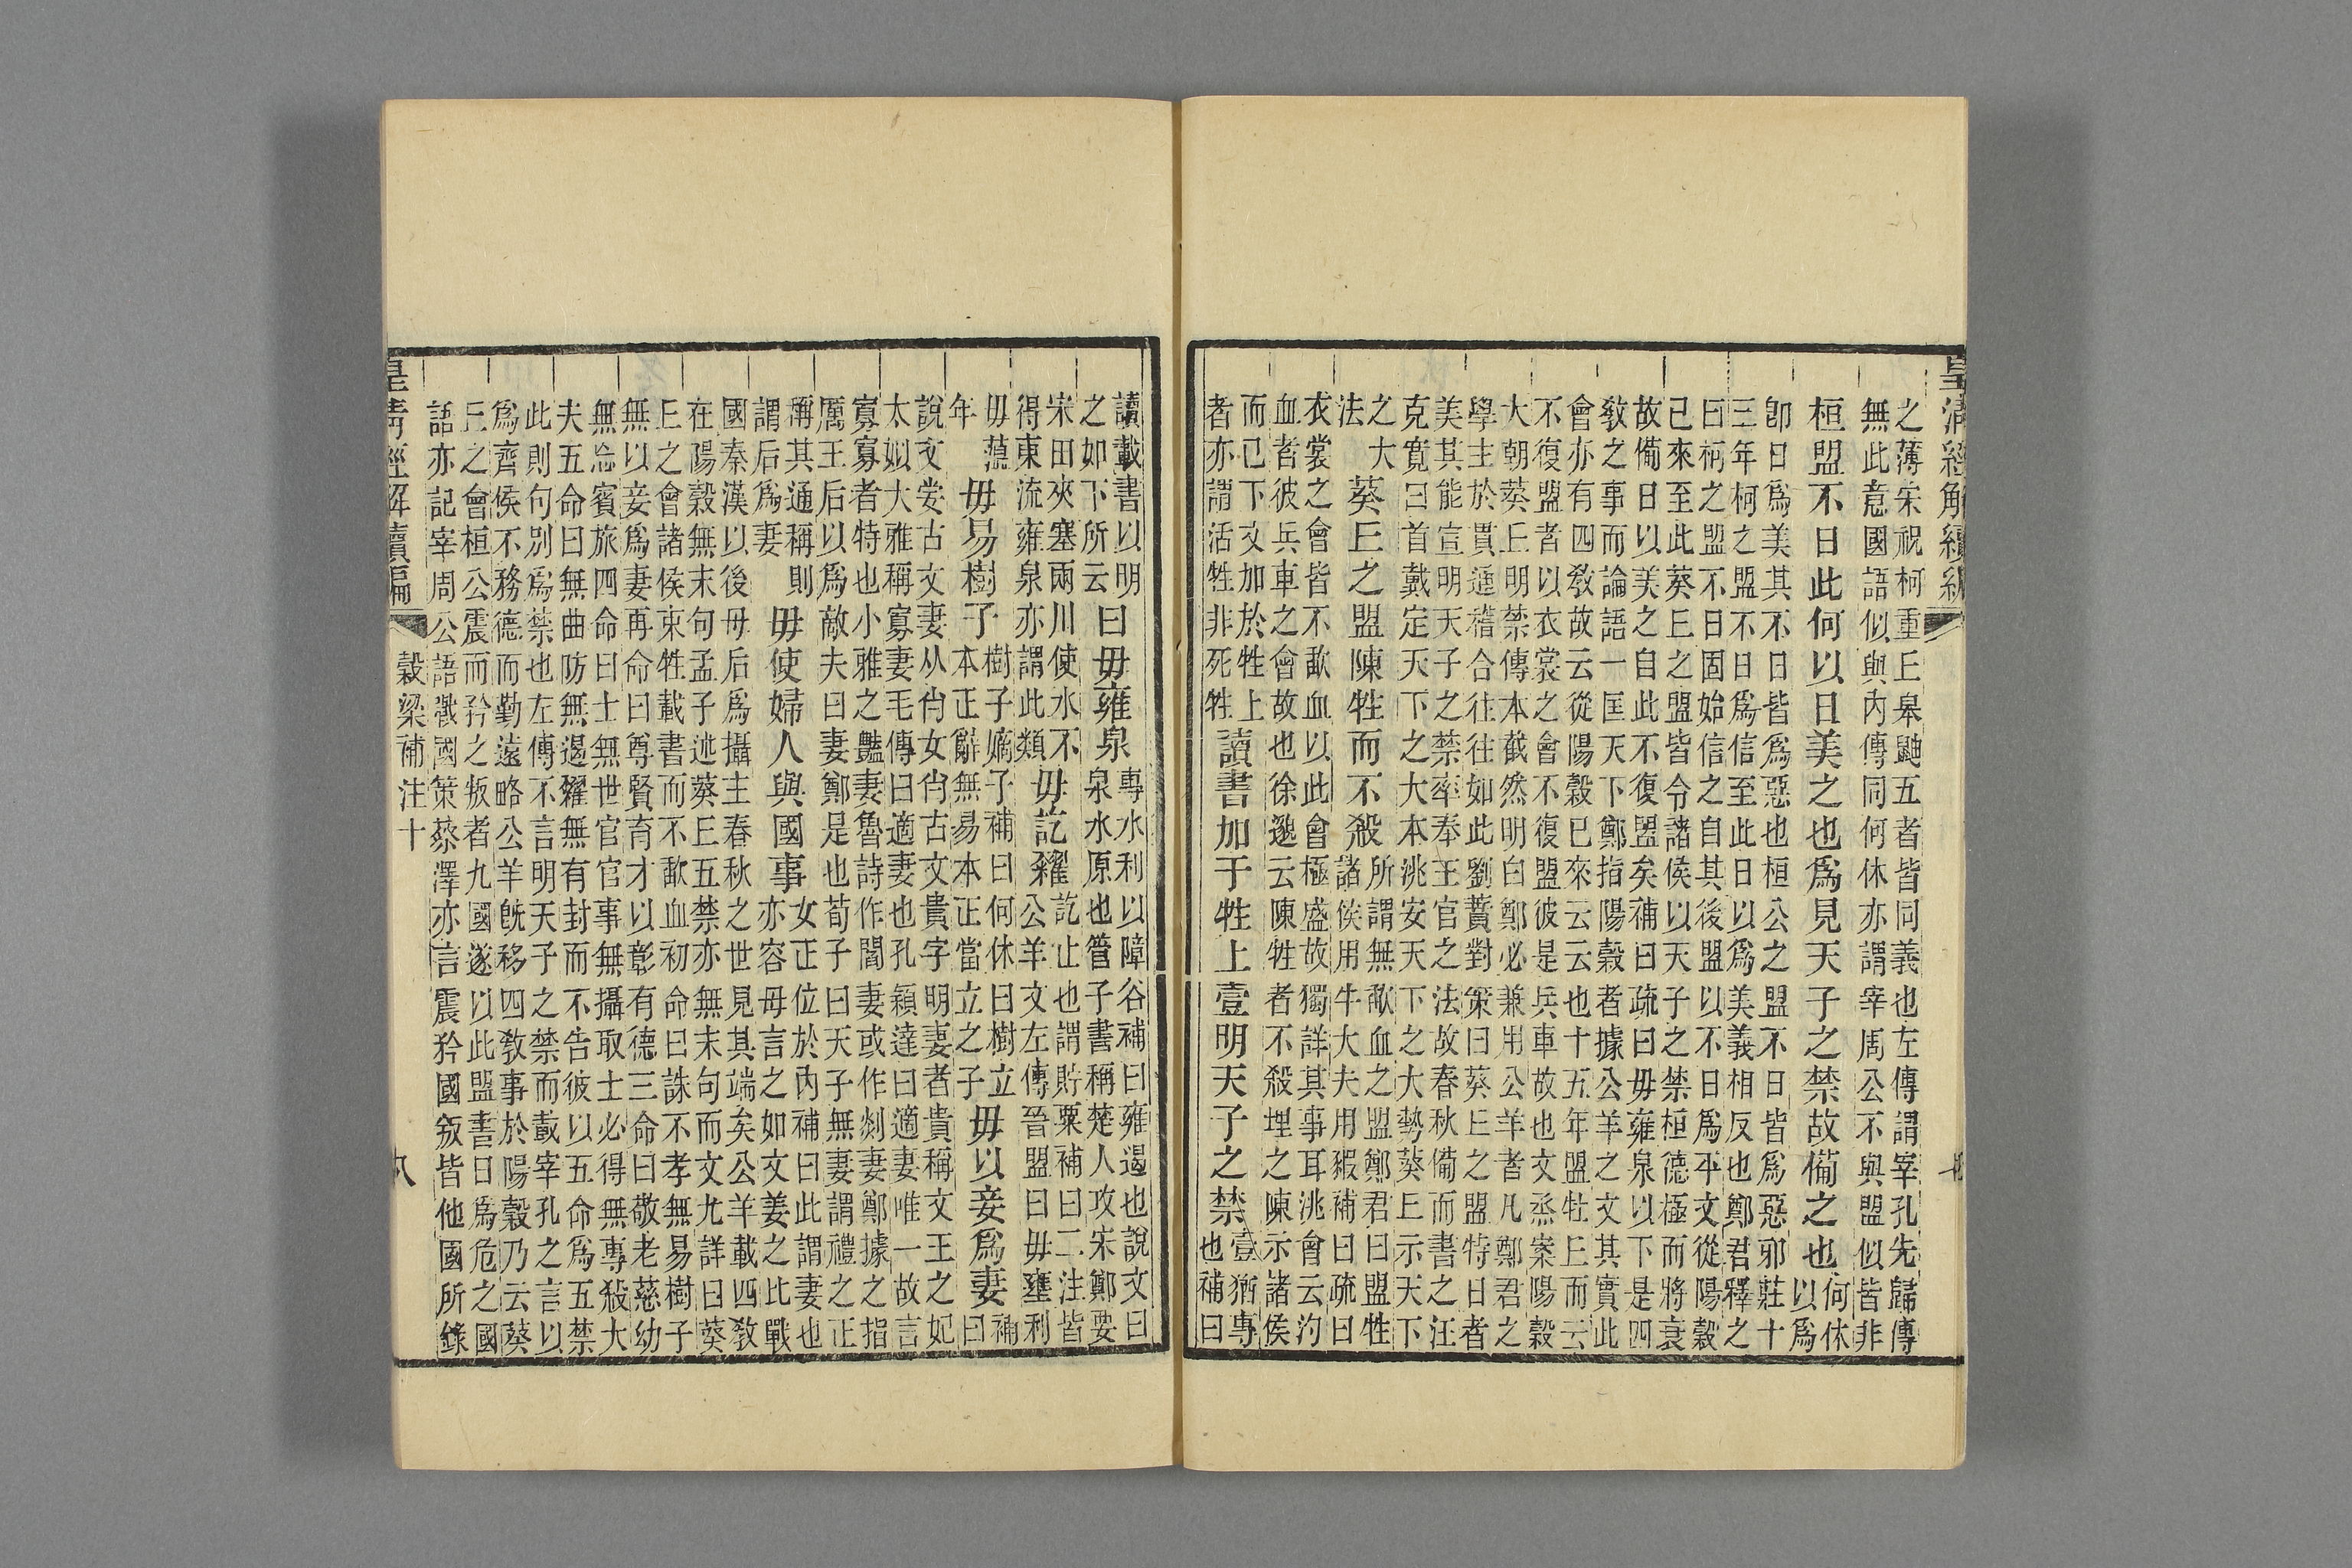 皇清經解續編
之薄宋祝柯重丘皋鼬五者皆同義也左傳謂宰孔先歸傳
無此意國語似與內傳同何休亦謂宰周公不與盟似皆非
桓盟不日此何以日美之也爲見天子之禁故備之也何休以爲
卽日爲美其不日皆爲惡也桓公之盟不日皆爲惡邪莊十
三年柯之盟不日爲信至此日以爲美義相反也鄭君釋之
曰柯之盟不日固始信之自其後盟以不日爲平文從陽穀
已來至此葵丘之盟皆令諸侯以天子之禁桓德極而將衰
故備日以美之自此不復盟矣補曰疏曰毋雍泉以下是四
敎之事而論語一匡天下鄭指陽穀者據公羊之文其實此
會亦有四敎故云從陽穀已來云云也十五年盟牡丘而云
不復盟者以衣裳之會不復盟彼是兵車故也文烝案陽穀
大朝葵丘明禁傳本截然明白鄭必兼用公羊者凡鄭君之
學主於貫通稽合往往如此劉蕡對策曰葵丘之盟特日者
美其能宣明天子之禁率奉王官之法故春秋備而書之汪
克寬曰首戴定天下之大本洮安天下之大勢葵丘示天下
之大法葵丘之盟陳牲而不殺所謂無歃血之盟鄭君曰盟牲諸侯用牛大夫用豭補曰疏曰
衣裳之會皆不歃血以此會極盛故獨詳其事耳洮會云汋
血者彼兵車之會故也徐邈云陳牲者不殺埋之陳示諸侯
而已下文加於牲上者亦謂活牲非死牲讀書加于牲上壹明天子之禁壹猶專也補曰
讀載書以明之如下所云曰毋雍泉專水利以障谷補曰雍遏也說文曰泉水原也管子書稱楚人攻宋鄭要
宋田夾塞兩川使水不得東流雍泉亦謂此類毋訖糴訖止也謂貯粟補曰二注皆公羊文左傳晉盟曰毋壅利
毋薀年毋易樹子樹子嫡子補曰何休曰樹立本正辭無易本正當立之子毋以妾爲妻補曰
說文妛古文妻从肖女肖古文貴字明妻者貴稱文王之妃
太姒大雅稱寡妻毛傳曰適妻也孔穎達曰適妻唯一故言
寡寡者特也小雅之豔妻魯詩作閻妻或作剡妻鄭據之指
厲王后以爲敵夫曰妻鄭是也荀子曰天子無妻謂禮之正
稱其通稱則謂后爲妻毋使婦人與國事女正位於內補曰此謂妻也亦容毋言之如文姜之比戰
國秦漢以後母后爲攝主春秋之世見其端矣公羊載四敎
在陽穀無末句孟子述葵丘五禁亦無末句而文尤詳曰葵
丘之會諸侯束牲載書而不歃血初命曰誅不孝無易樹子
無以妾爲妻再命曰尊賢育才以彰有德三命曰敬老慈幼
無忘賓旅四命曰士無世官官事無攝取士必得無專殺大
夫五命曰無曲防無遏糴無有封而不告彼以五命爲五禁
此則句別爲禁也左傳不言明天子之禁而載宰孔之言以
爲齊侯不務德而勤遠略公羊旣移四敎事於陽穀乃云葵
丘之會桓公震而矜之叛者九國遂以此盟書日爲危之國
語亦記宰周公語戰國策蔡澤亦言震矜國叛皆他國所錄
皇清經解續編 穀梁補注十 八